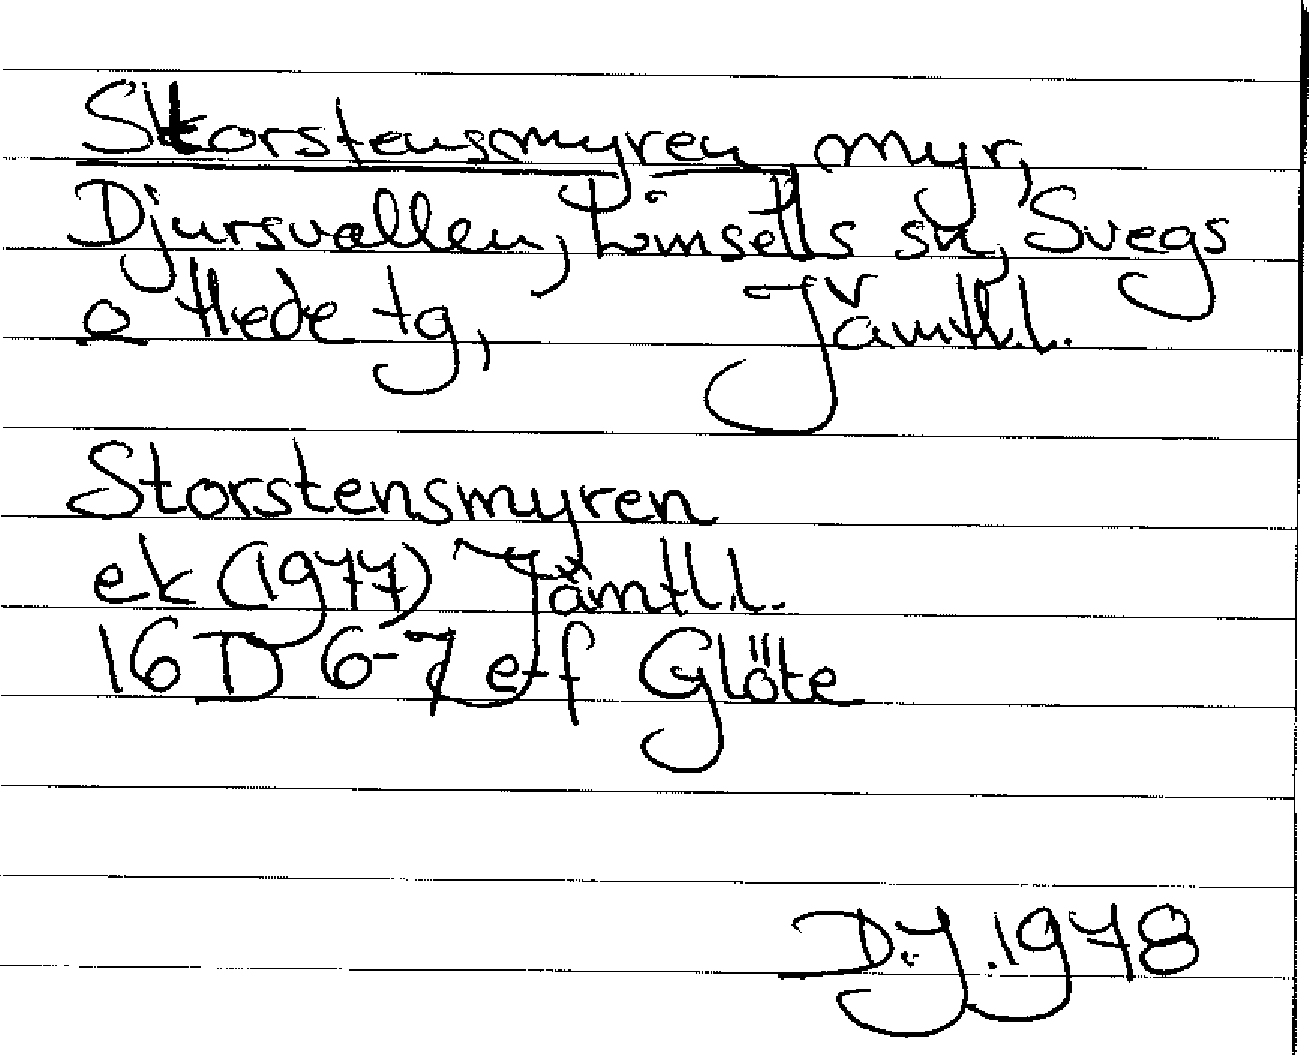 Storstensmyren, myr,
Djursvallen, Linsells sn, Svegs
o Hede tg, Jämtl.l.
Storstensmyren
ek (1977) Jämtl.l.
16 D 6-7 e-f Glöte
D.J. 1978